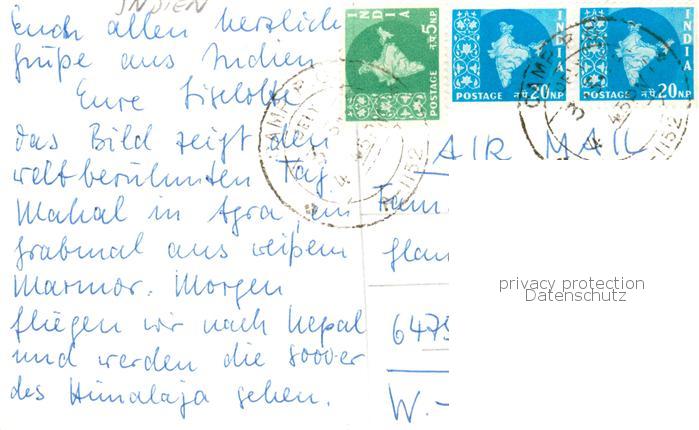 INDIEN
Euch allen herzliche
Grüße aus Indien
Eure Liselotte
das Bild zeigt den
weltberühmten Taj
Mahal in Agra, ein
Grabmal aus weißem
Marmor. Morgen
fliegen wir nach Nepal
und werden die 8000er
des Himalaja sehen.
INDIA
न.पै.5NP.
POSTAGE
INDIA
न.पै.20NP.
POSTAGE
INDIA
न.पै.20NP.
POSTAGE
AIR MAIL
Fam
6475
W.-
privacy protection
Datenschutz